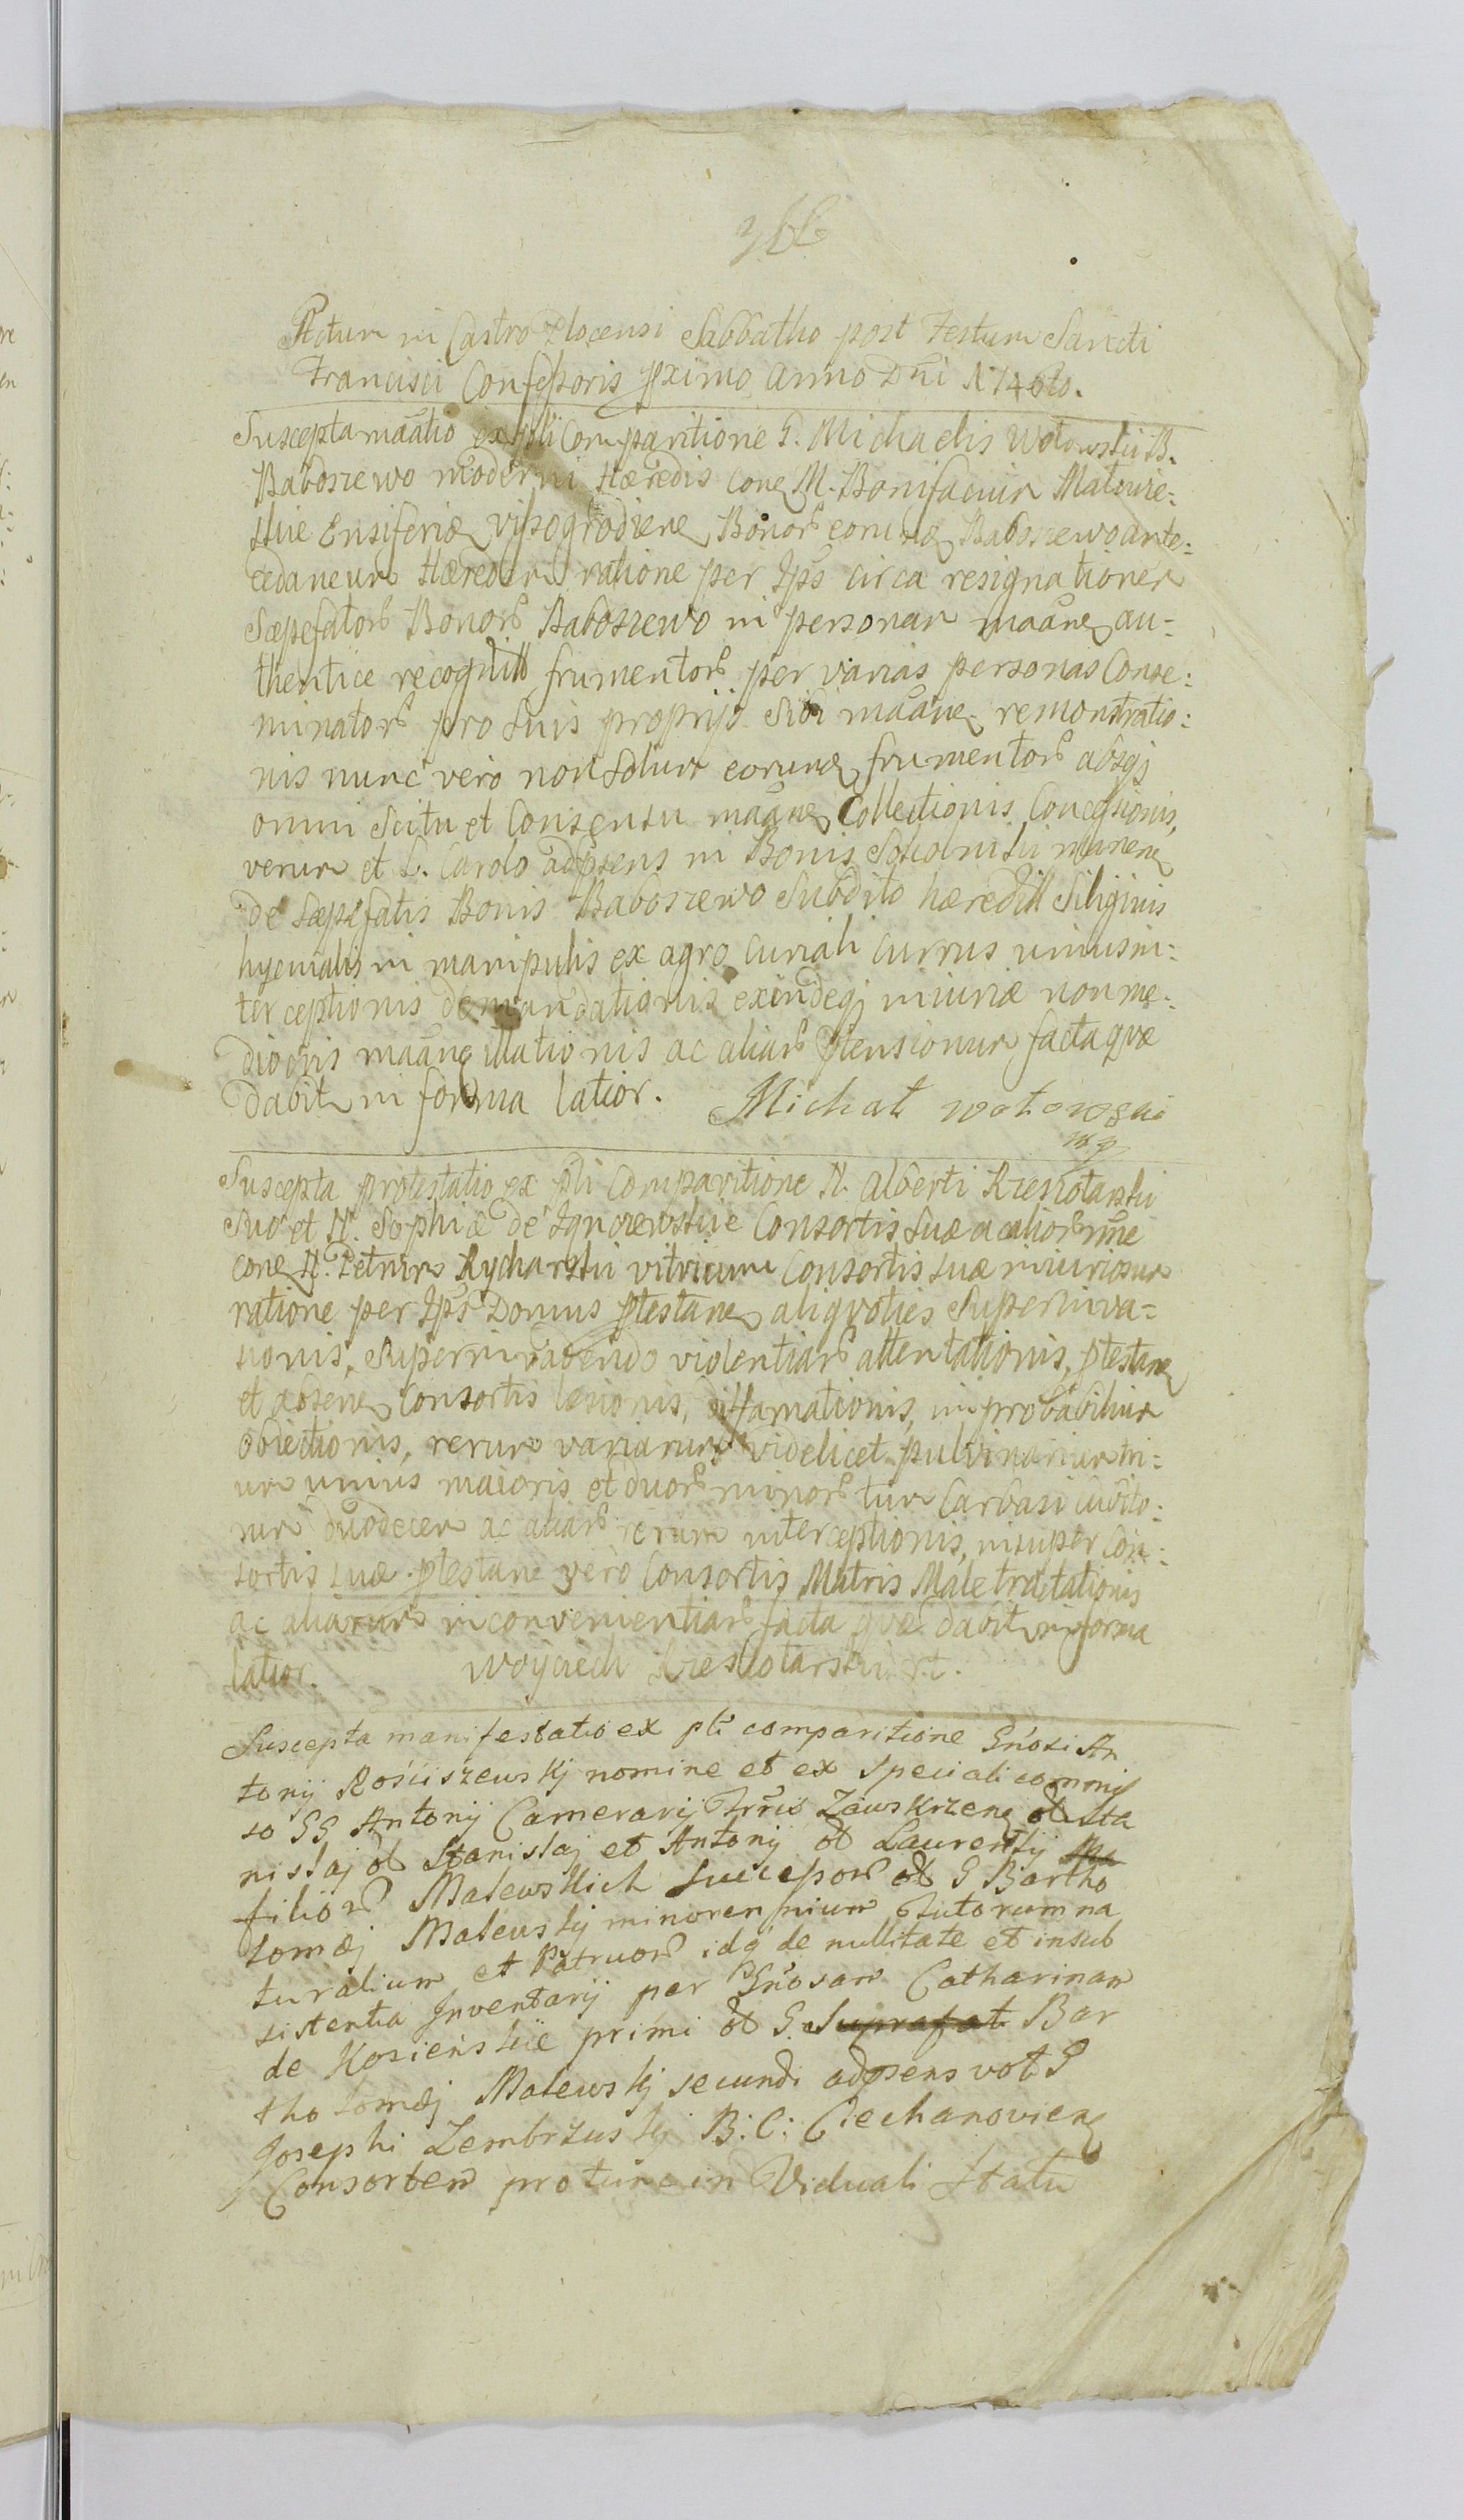 366
Actum in Castro Plocensi Sabbatho post Festum Sancti
Francisci Confessoris pximo Anno Dni
Suscepta maatio ex pli Comparitione G. Michaelis Wołowskii B.
Baboszewo moderni Hæredis conq M. Bonifacium
skie Ensiferiæ Vissogrodienq Bonorb eorumq Baboszewo ante:
cedaneum Hæredem ratione per Ips circa resignationem
Sæpefatorb Bonorb Baboszewo in personam maanq au:
thentice recognitt frumentorb per varias personas Conse:
minatorb pro suis proprijs sibi maane. remonstratio:
nis nunc vero non solum eorumq frumentorb absqj
omni Scitu et Consensu maanq Collectionis Concessionis,
verum et L. Carolo adpsens in Bonis manenq
de Sæpefatis Bonis Baboszewo Subdito hæredill Siliginis
hyemalis in manipulis ex agro Curiali currus unius in:
terceptionis demandationis exindeqj iniuriæ non me:
diocris maanq illationis ac aliarb ptensionum facta quæ
dabit in forma latior. Michał wołowski
mp
Suscepta protestatio ex pli Comparitione N. Alberti
suo et N. Sophiæ de Consortis suæ ac aliorb nne
conq N. Petrum Rycharski vitricum Consortis suæ iniuriosum
ratione per Ips Domus ptestanq aliquoties Superinva=
sionis, Superinvadendo violentiarb attentationis, ptestanq
et absenq Consortis læsionis, diffamationis, improbabilium
obiectionis, rerum variarum videlicet pulvinarium tri:
um unius maioris et duorb minorb tum Carbasi cubito:
rum duodecem ac aliarb rerum interceptionis, insuper Con:
sortis suæ ptestanq vero Consortis Matris Male tractationis
ac aliarum inconvenientiarb facta quæ dabit in forma
latior. Woyciech
Suscepta manifestatio ex pli comparitione Gnosi An
tonij Rościszewskj nomine et ex speciali commis
so GG Antonij Camerarij Trris Zawskrzenq et Sta
nislaj et Stanislaj et Antonij et Laurentij Ma
filiorb Malewskich Succesorb et G Bartho
lomæj Malewskj minorennium Tutorum na
turalium et Patruorb idq de nullitate et insub
sistentia Inventarij per Gnosam Catharinam
de Kosieńskie primi et G. Suprafat Bar
tholomæj Malewskj secundi adpsens vot G
Josephi Zembrzuskj B: C: Ciechanovienq
Consortem protunc in Viduali Statu